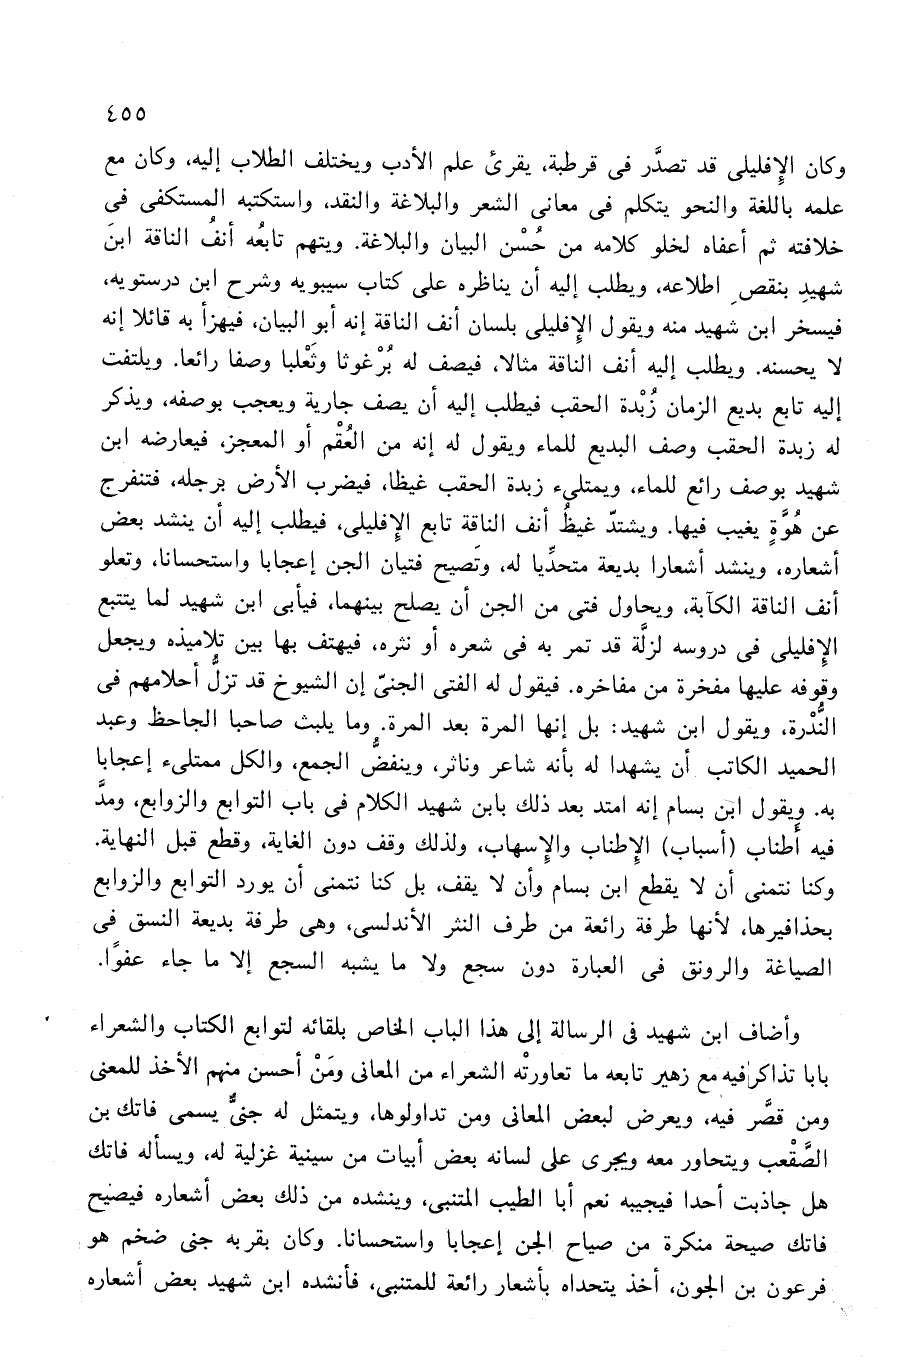 ٤٥٥
وكان الإفليلى قد تصدَّر فى قرطبة، يقرئ علم الأدب ويختلف الطلاب إليه، وكان مع
علمه باللغة والنحو يتكلم فى معانى الشعر والبلاغة والنقد، واستكتبه المستكفى فى
خلافته ثم أعفاه لخلو كلامه من حُسْن البيان والبلاغة. ويتهم تابعُه أنفُ الناقة ابنَ
شهيد بنقص اطلاعه، ويطلب إليه أن يناظره على كتاب سيبويه وشرح ابن درستويه،
فيسخر ابن شهيد منه ويقول الإفليلى بلسان أنف الناقة إنه أبو البيان، فيهزأ به قائلا إنه
لا يحسنه. ويطلب إليه أنف الناقة مثالا، فيصف له بُرْغوثا وثَعْلبا وصفا رائعا. ويلتفت
إليه تابع بديع الزمان زُبْدة الحقب فيطلب إليه أن يصف جارية ويعجب بوصفه، ويذكر
له زبدة الحقب وصف البديع للماء ويقول له إنه من العُقْم أو المعجز، فيعارضه ابن
شهيد بوصف رائع للماء، ويمتلىء زبدة الحقب غيظا، فيضرب الأرض برجله، فتنفرج
عن هُوَّةٍ يغيب فيها. ويشتدّ غيظُ أنف الناقة تابع الإفليلى، فيطلب إليه أن ينشد بعض
أشعاره، وينشد أشعارا بديعة متحدِّيا له، وتَصيح فتيان الجن إعجابا واستحسانا، وتعلو
أنف الناقة الكآبة، ويحاول فتى من الجن أن يصلح بينهما، فيأبى ابن شهيد لما يتتبع
الإفليلى فى دروسه لزلَّة قد تمر به فى شعره أو نثره، فيهتف بها بين تلاميذه ويجعل
وقوفه عليها مفخرة من مفاخره. فيقول له الفتى الجنىّ إن الشيوخ قد تزلُّ أحلامهم فى
النُّدْرة، ويقول ابن شهيد: بل إنها المرة بعد المرة. وما يلبث صاحبا الجاحظ وعبد
الحميد الكاتب أن يشهدا له بأنه شاعر وناثر، وينفضُّ الجمع، والكل ممتلىء إعجابا
به. ويقول ابن بسام إنه امتد بعد ذلك بابن شهيد الكلام فى باب التوابع والزوابع، ومدَّ
فيه أَطناب (أسباب) الإطناب والإسهاب، ولذلك وقف دون الغاية، وقطع قبل النهاية.
وكنا نتمنى أن لا يقطع ابن بسام وأن لا يقف، بل كنا نتمنى أن يورد التوابع والزوابع
بحذافيرها، لأنها طرفة رائعة من طرف النثر الأندلسى، وهى طرفة بديعة النسق فى
الصياغة والرونق فى العبارة دون سجع ولا ما يشبه السجع إلا ما جاء عفوًا.
وأضاف ابن شهيد فى الرسالة إلى هذا الباب الخاص بلقائه لتوابع الكتاب والشعراء
بابا تذاكر فيه مع زهير تابعه ما تعاورتْه الشعراء من المعانى ومَنْ أحسن منهم الأخذ للمعنى
ومن قصَّر فيه، ويعرض لبعض المعانى ومن تداولوها، ويتمثل له جنىٌّ يسمى فاتك بن
الصَّقْعب ويتحاور معه ويجرى على لسانه بعض أبيات من سينية غزلية له، ويسأله فاتك
هل جاذبت أحدا فيجيبه نعم أبا الطيب المتنبى، وينشده من ذلك بعض أشعاره فيصيح
فاتك صيحة منكرة من صياح الجن إعجابا واستحسانا. وكان بقربه جنى ضخم هو
فرعون بن الجون، أخذ يتحداه بأشعار رائعة للمتنبى، فأنشده ابن شهيد بعض أشعاره